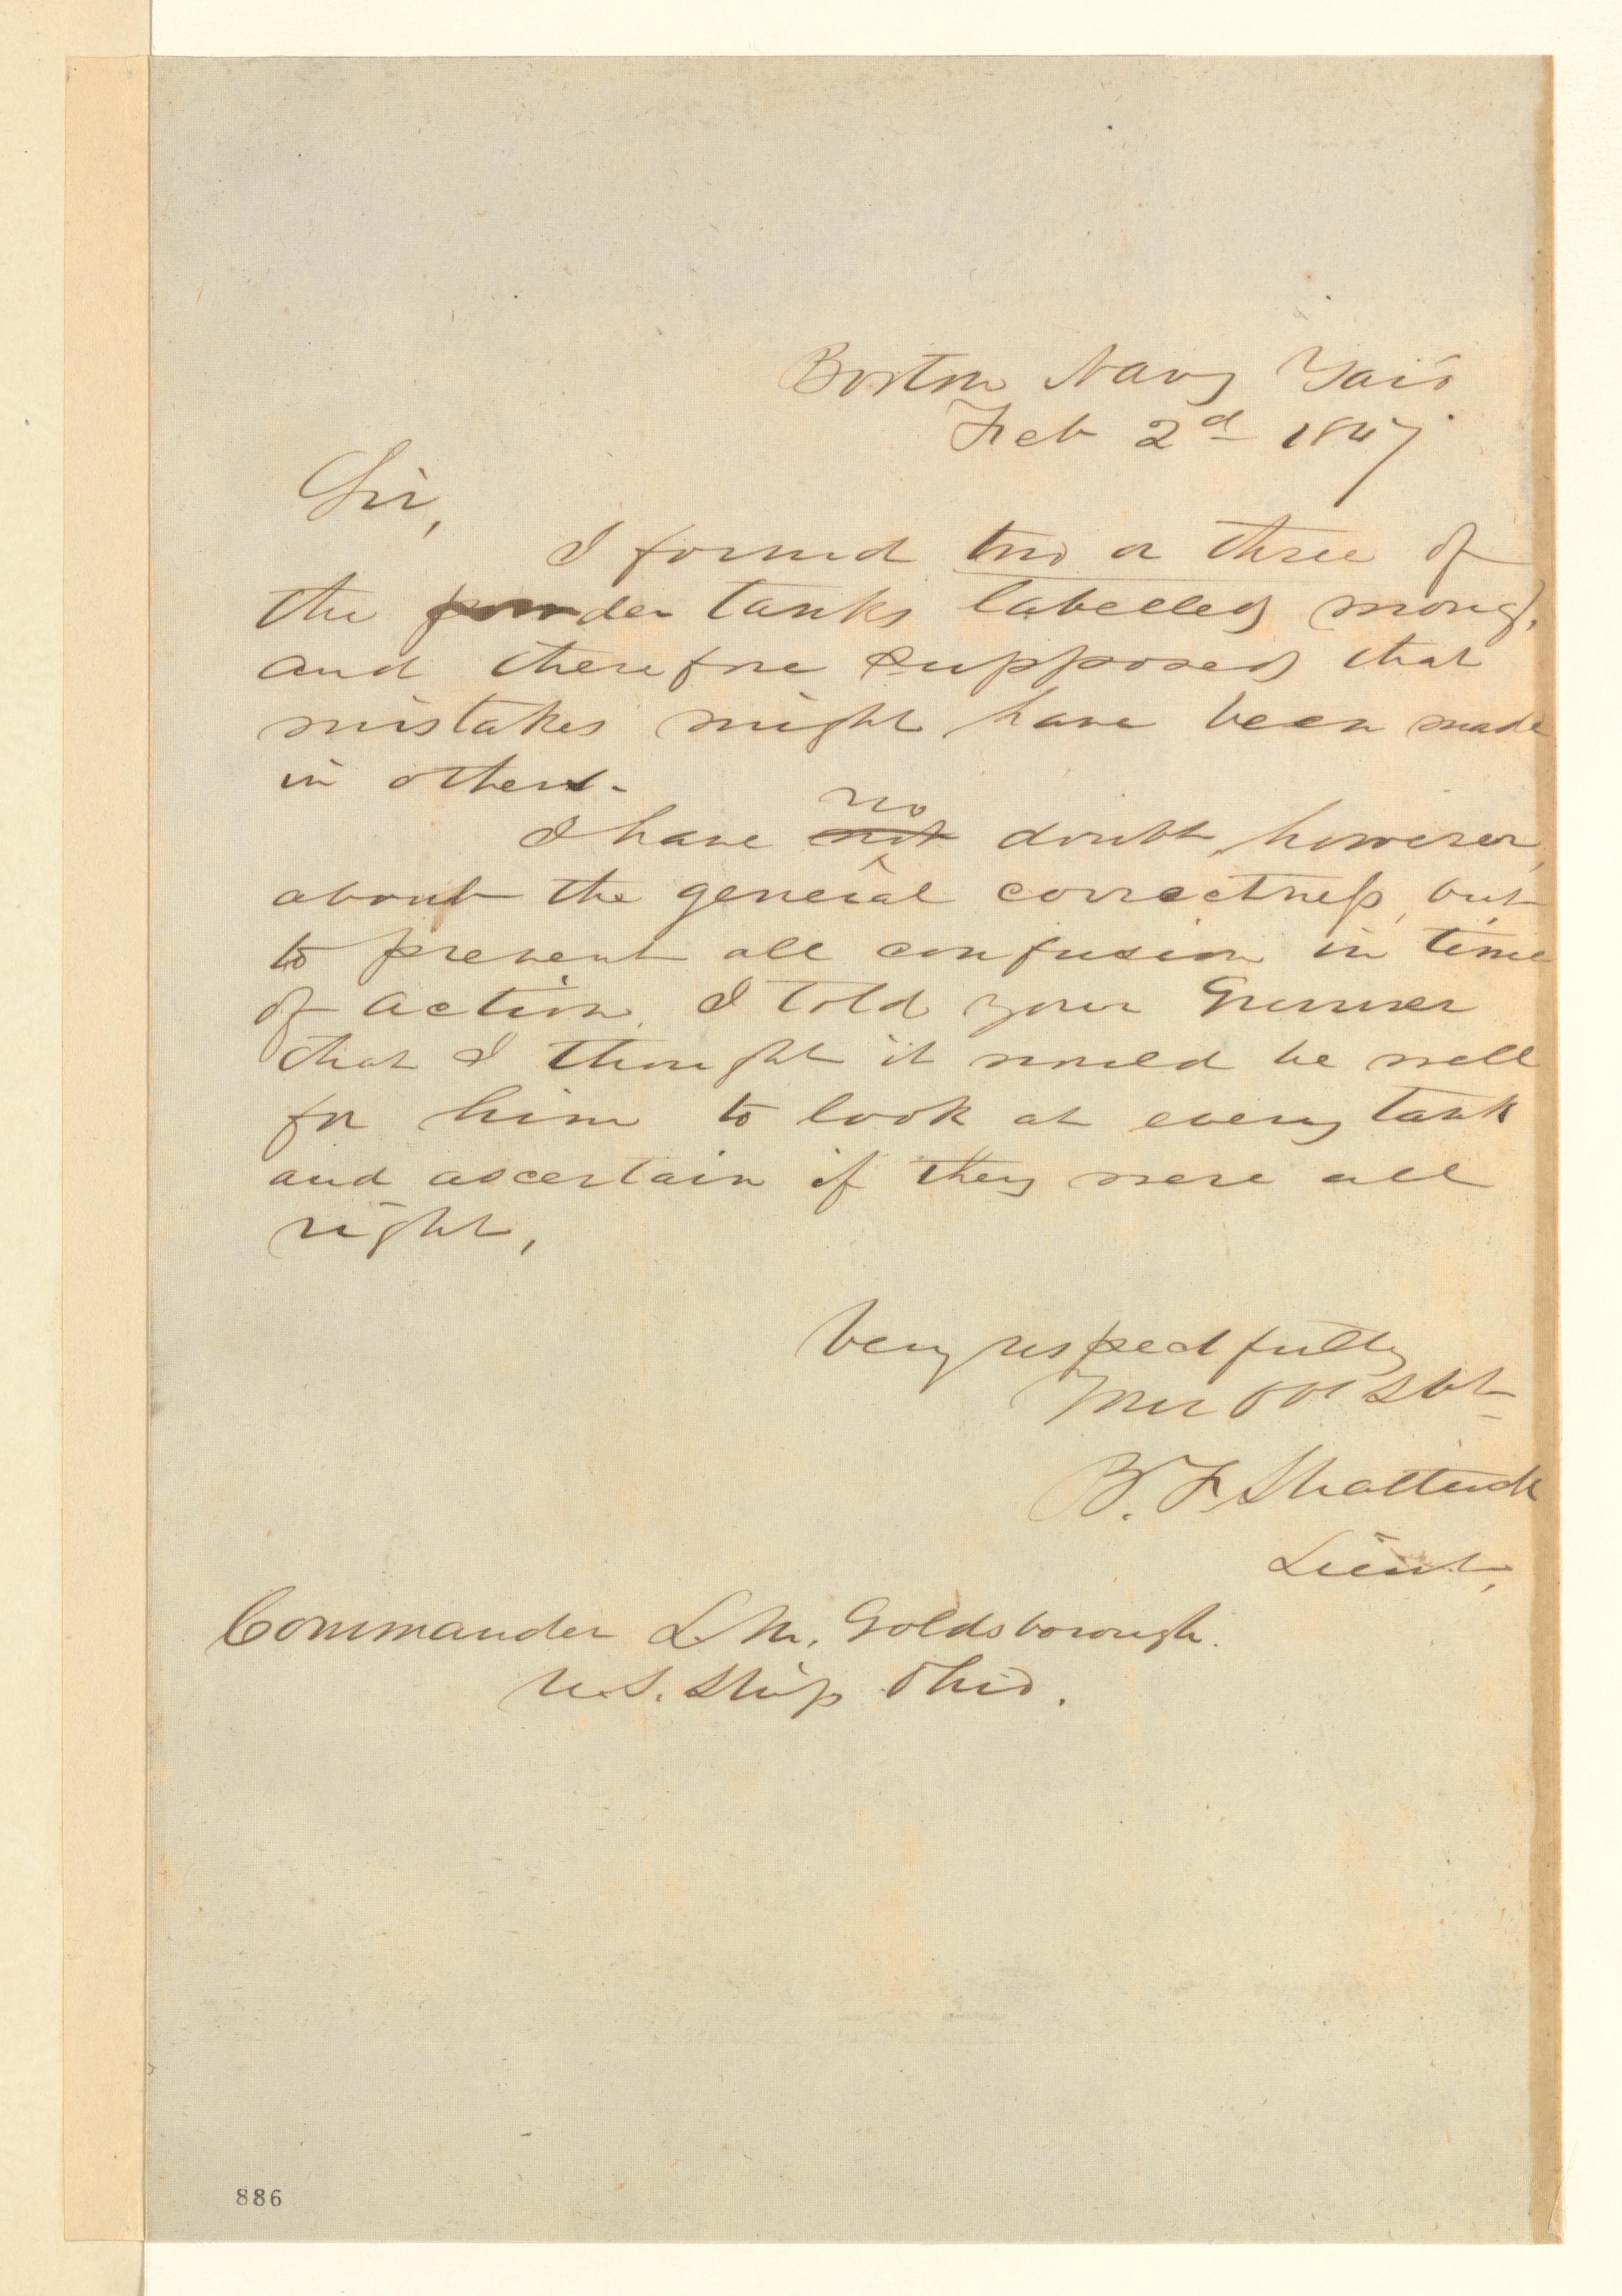 Boston Navy Yard
Feb 2d 1847
Sir,
I found two or three of
the powder tanks labelled wrong,
and therefore supposed that
mistakes might have been made
in others.
no
I have not doubt, however,
about the general correctness, but
to prevent all confusion in time
of action, I told your Gunner
that I thought it would be well
for him to look at every tank
and ascertain if they were all
right,
Very respectfully
Your obt Svt
B. F. Shattuck
Lieut,
Commander L. M. Goldsborough.
U.S. Ship Ohio.
886